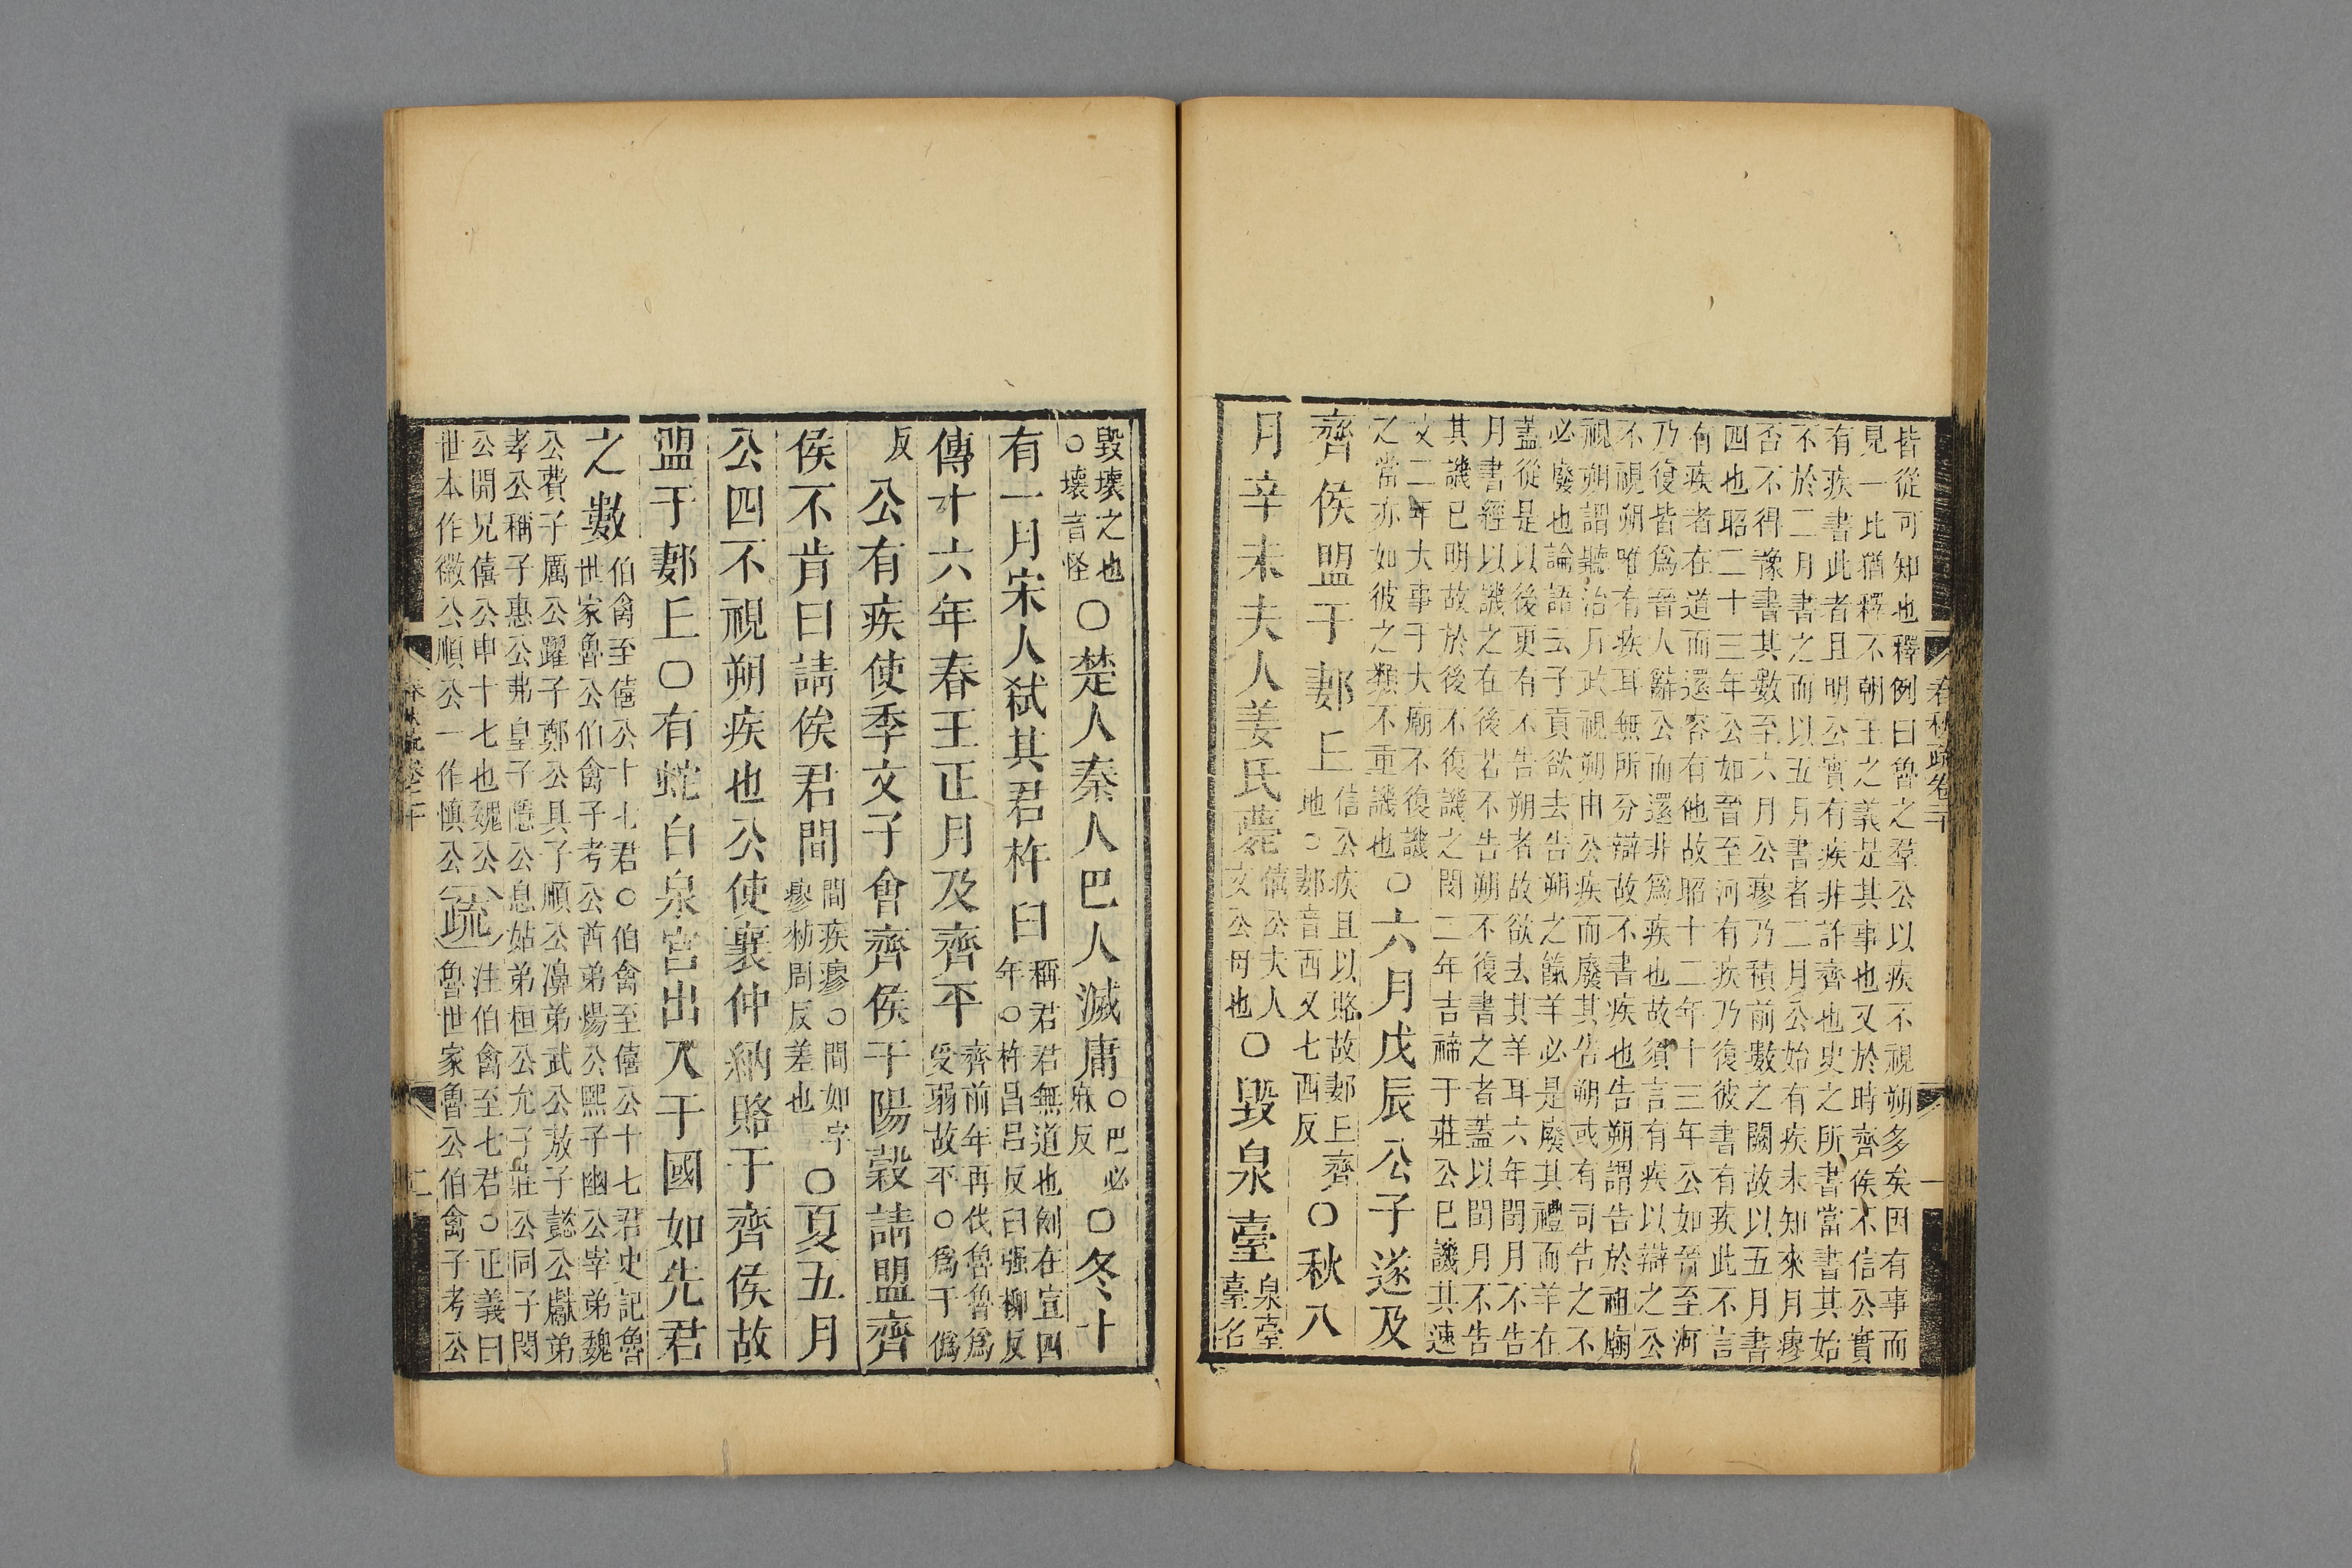 皆從可知也釋例曰魯之羣公以疾不視朔多矣因有事而
見一比猶釋不朝王之義是其事也又於時齊侯不信公實
有疾書此者且明公實有疾非詐齊也史之所書當書其始
不於二月書之而以五月書者二月公始有疾未知來月瘳
否不得豫書其數至六月公瘳乃積前數之闕故以五月書
四也昭二十三年公如晉至河有疾乃復彼書有疾此不言
有疾者在道而還容有他故昭十二年十三年公如晉至河
乃復皆爲晉人辭公而還非爲疾也故須言有疾以辯之公
不視朔唯有疾耳無所分辯故不書疾也告朔謂告於祖廟
視朔謂聽治月政視朔由公疾而廢其告朔或有司告之不
必廢也論語云子貢欲去告朔之餼羊必是廢其禮而羊在
蓋從是以後更有不告朔者故欲去其羊耳六年閏月不告
月書經以譏之在後若不告朔不復書之者蓋以閏月不告
其譏已明故於後不復譏之閔二年吉禘于莊公已譏其速
文二年大事于大廟不復譏
之當亦如彼之類不重譏也
○六月戊辰公子遂及
齊侯盟于郪丘
信公疾且以賂故郪丘齊
地○郪音西又七西反
○秋八
月辛未夫人姜氏薨
僖公夫人
文公母也
○毀泉臺
泉臺
臺名
春秋疏卷二十
毀壞之也
○壞音怪
○楚人秦人巴人滅庸
○巴必
麻反
○冬十
有一月宋人弒其君杵臼
稱君君無道也例在宣四
年○杵昌呂反臼强柳反
傳十六年春王正月及齊平
齊前年再伐魯魯爲
受弱故平○爲于僞
反
公有疾使季文子會齊侯于陽穀請盟齊
侯不肯曰請俟君間
間疾瘳○間如字
瘳勑周反差也
○夏五月
公四不視朔疾也公使襄仲納賂于齊侯故
盟于郪丘○有蛇自泉宮出入于國如先君
之數
伯禽至僖公十七君○伯禽至僖公十七君史記魯
世家魯公伯禽子考公酋弟煬公熙子幽公宰弟魏
公費子厲公躍子鄭公具子順公濞弟武公敖子懿公獻弟
孝公稱子惠公弗皇子隱公息姑弟桓公允子莊公同子閔
公開兄僖公申十七也魏公
世本作微公順公一作慎公
疏
注伯禽至七君○正義曰
魯世家魯公伯禽子考公